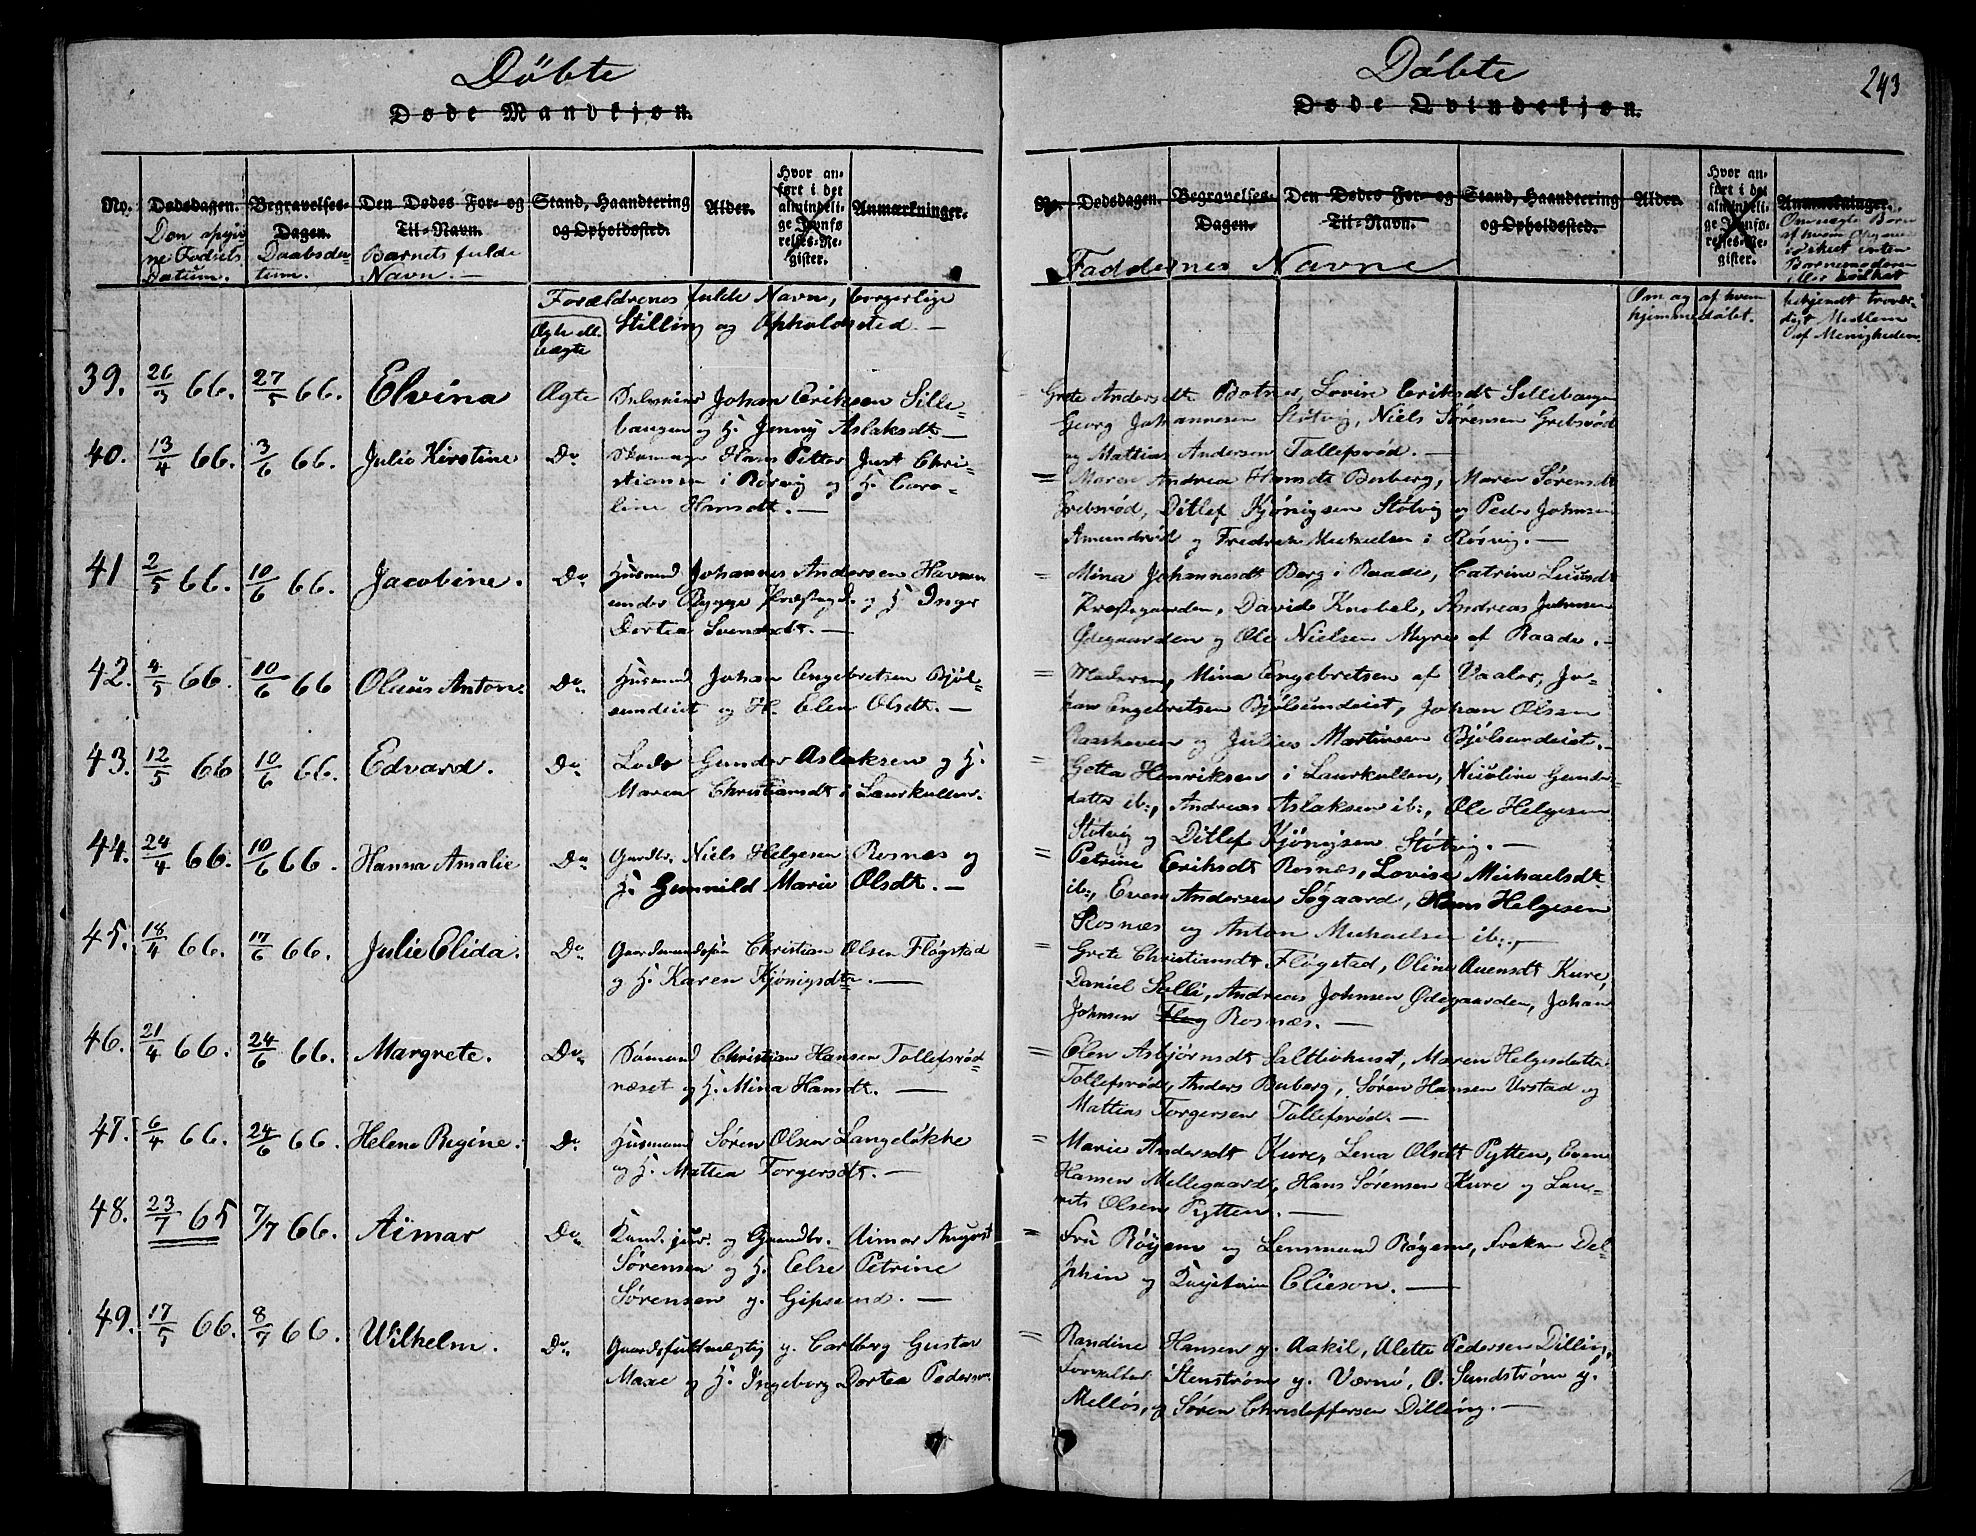 Døbte
Døde Mandkjøn.
No.
Dødsdagen.
Den opgivne Fødsels Datum.
Begravelses-Dagen.
Daabsdatum.
Den Dødes For- og Til-Navn.
Barnets fulde Navn. —
Stand, Haandtering og Opholdssted.
Alder.
Hvor anført i det almindelige Jevnførelses-Register.
Anmærkninger.
Forældrenes fulde Navne, borgerlige
Stilling og Opholdsted. —
Ægte ell. uægte
39. 26/3 66. 27/5 66. Elvina Ægte Selveier Johan Eriksen Sille-
baugen og H. Jenny Aslaksdt. —
40. 13/4 66. 3/6 66. Julie Kirstine Do Hans Petter Just Chri-
stiansen i Rørvig og H. Caro-
line Hansdt. —
41 2/5 66. 10/6 66. Jacobine. Do Husmand Johannes Andersen Havnen
under Rygge Præstegd. og H. Inger
Dortea Svendsdt. —
42. 4/5 66. 10/6 66 Olaus Anton. Do. Husmand Johan Engebretsen Bjøl-
sundeiet og H. Elen Olsdt. —
43. 12/5 66 10/6 66. Edvard. Do. Lods Gunder Aslaksen og H.
Maren Christiansdt i Laurkullen.
44. 24/4 66. 10/6 66. Hanna Amalie Do Gardbr. Niels Helgesen Rosnæs og
H. Gunnild Marie Olsdt. —
45. 18/4 66. 17/6 66. Julie Elida. Do. Gaardmandssøn Christian Olsen Fløgstad
og H. Karen Kjønigsdtr. —
46. 21/4 66. 24/6 66. Margrete. Do. Sømand Christian Hansen Tollefsrød-
næset og H. Mina Hansdt. —
47. 6/4 66. 24/6 66. Helene Regine. Do. Husmand Søren Olsen Langeløkke
og H. Mattea Torgersdt. —
48. 23/7 65 7/7 66. Aimar Do. Cand. jur. og Gaardbr. Aimar August
Sørensen og H. Else Petrine
Sørensen g. Gipsund. —
49. 17/5 66. 8/7 66. Wilhelm. Do. Gaardsfuldmægtig g. Carlberg Gustav
Maxe og H. Ingeborg Dortea Pedersen.
Døbte
243
Døde Qvindekjøn.
No.
Dødsdagen.
Begravelses-Dagen.
Den Dødes For- og Til-Navn.
Stand, Haandtering og Opholdssted.
Alder.
Hvor anført i det almindelige Jevnførelses-Register.
Anmærkninger.
Faddernes Navne
Om og af hvem
hjemmedøbt.
Om uægte Børn
af hvem Opgiven
Barnemoderen
eller
bekjendt trover-
digt Medlem
af Menigheden.
Grete Andersdt Botner, Lovise Eriksdt Sillebaugen
Georg Johannesen Støtvig, Niels Sørensen Grebsrød
og Mattias Andersen Tollefsrød. —
= Maren Andrea Hansdt Buberg, Maren Sørensdt
Grebsrød, Ditlef Kjønigsen Støtvig og Peder Johnsen
Amundrød og Fredrik Michelsen i Rørvig. —
= Mina Johannesdt Berg i Raade, Catrine
Præstegaarden, David Knobel, Andreas Johnsen
Ødegaarden og Ole Nielsen Myre af Raade. —
= Moderen, Mina Engebretsen af Vaaler, Jo-
han Engebretsen Bjølsundeiet, Johan Olsen
og Julius Martinsen Bjølsundeiet. —
= Getta Henriksen i Laurkullen, Nicoline Gunder-
datter ib:, Andreas Aslaksen ib:, Ole Helgesen
Støtvig og Ditlef Kjønigsen Støtvig. —
= Petrine Eriksdt Rosnæs, Lovise Michaelsdt.
ib:, Even Andersen Søgaard, Hans Helgesen
Rosnæs og Anton Michaelsen ib:. —
= Grete Christiansdt Fløgstad, Oline Auensdt Kure,
Daniel Selli, Andreas Johnsen Ødegaarden, Johan
Johnsen Flog Rosnæs. —
= Elen Asbjørnsdt Salttevhuset, Maren Helgesdatter
Tollefsrød, Anders Buberg, Søren Hansen Urstad og
Mattias Torgersen Tollefsrød. —
= Marie Andersdt Kure, Lena Olsdt Pytten, Even
Hansen Mellegaard, Hans Sørensen Kure og Lau-
rits Olsen Pytten. —
= Fru Røyem og Lensmand Røyem, Frøken Del-
phin og Elieson. —
= Randine Hansen g. Aakil, Alette Pedersen Dilling,
Forvalter Stenstrøm g. Værnø, O. Sundstrøm g.
Melløs, og Søren Christoffersen Dilling. —